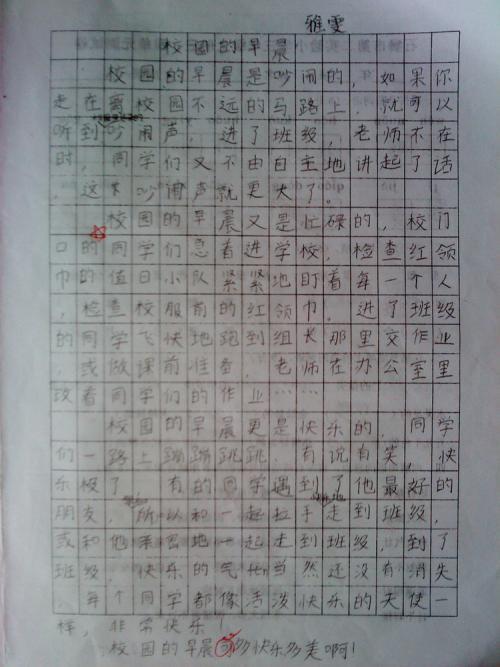 雅雯
校园的早晨
校园的早晨是吵闹的，如果你
走在离校园不远的马路上，就可以
听到吵闹声，进了班级，老师不在
时，同学们又不由自主地讲起了话
，这下吵闹声就更大了。
校园的早晨又是忙碌的，校门
口的同学们急着进学校，检查红领
巾的值日小队紧紧地盯着每一个人
，检查校服前的红领巾。进了班级
的同学飞快地跑到组长那里交作业
，或做课前准备，老师在办公室里
改着同学们的作业……
校园的早晨更是快乐的，同学
们一路上蹦蹦跳跳，有说有笑，快
乐极了。有的同学遇到了他最好的
朋友，所以和一起拉手走到班级，
或和他亲密地一起走到班级，到了
班级，快乐的气氛当然还没有消失
，每个同学都像活泼快乐的天使一
样，非常快乐！
校园的早晨多快乐多美啊！